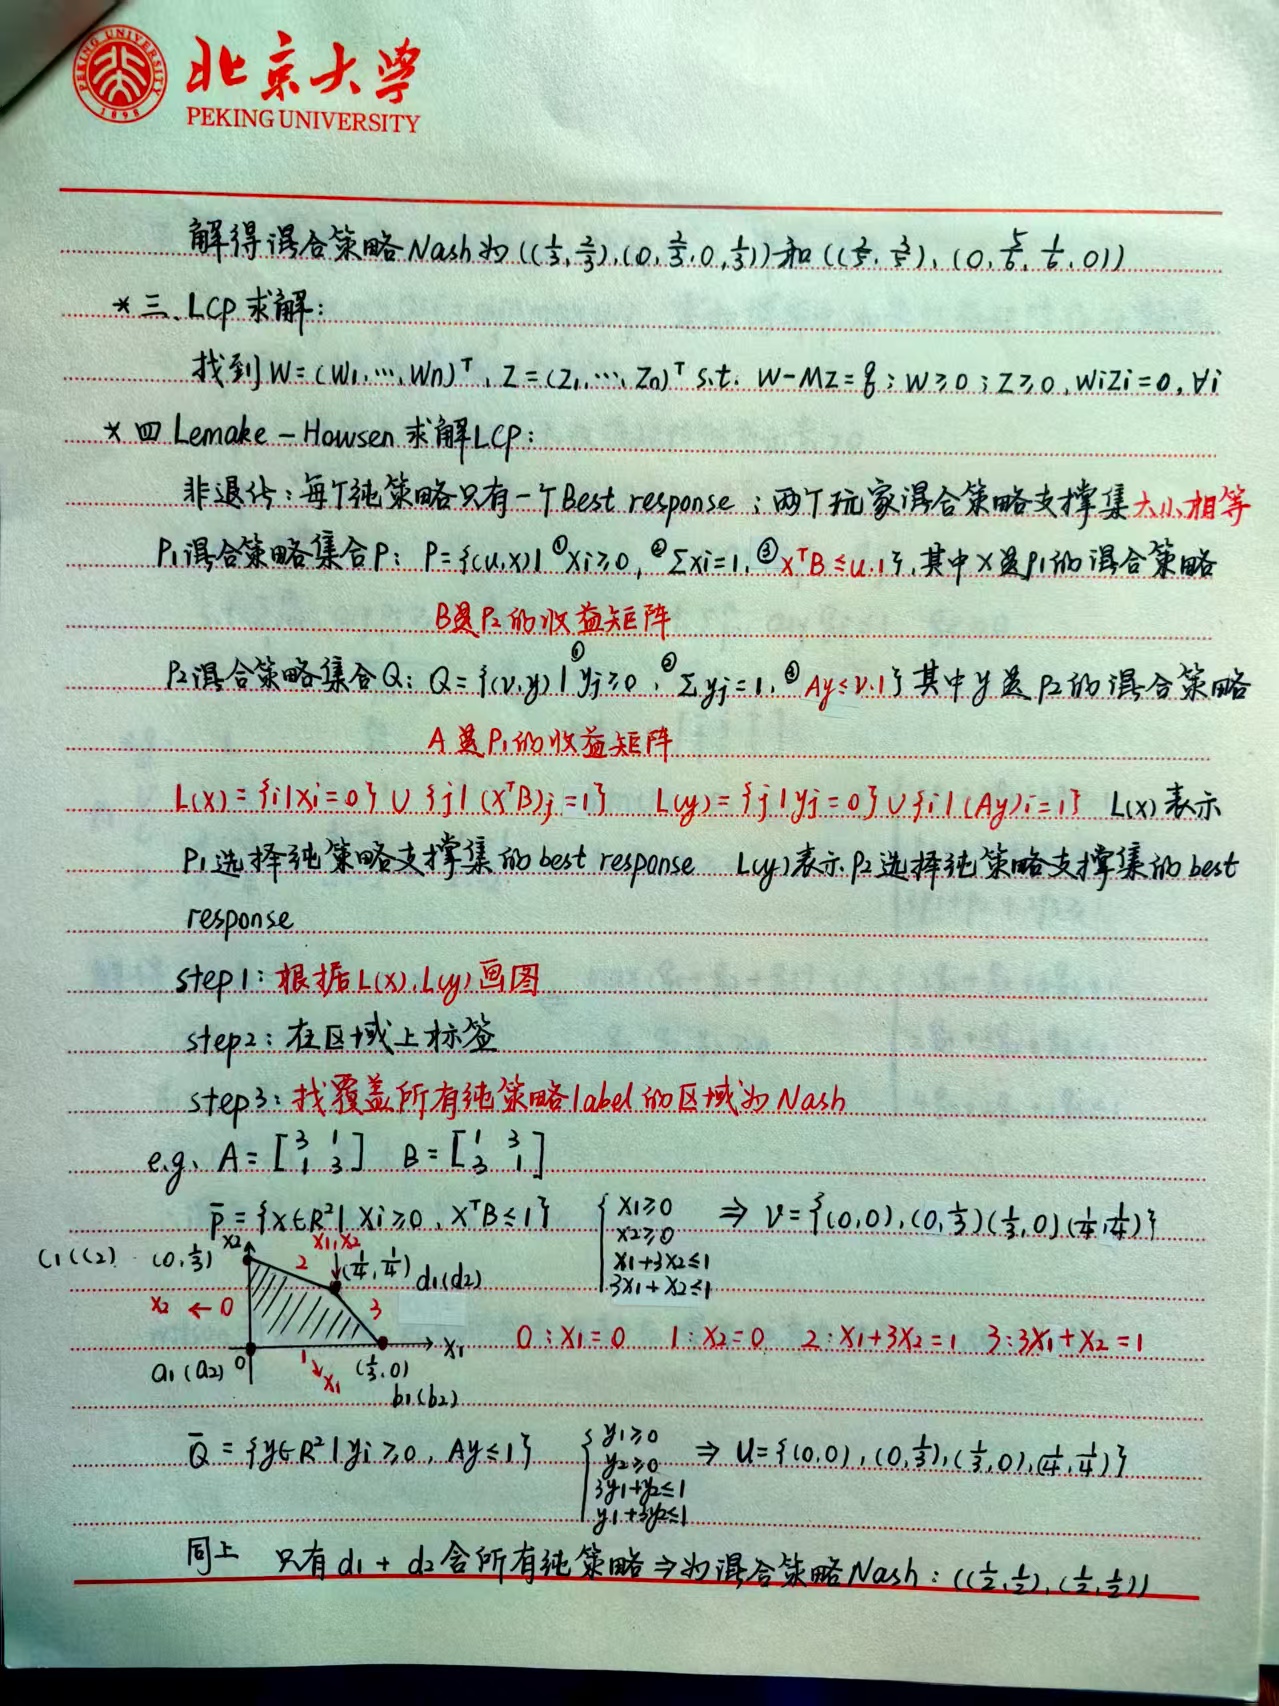 北京大学
PEKING UNIVERSITY
PEKING UNIVERSITY
1898
解得混合策略Nash为((1/3, 2/3), (0, 2/3, 0, 1/3))和((2/5, 3/5), (0, 5/6, 1/6, 0))
*三、LCP求解:
找到W=(W1,…,Wn)ᵀ, Z=(Z1,…,Zn)ᵀ s.t. W-MZ=q; W≥0; Z≥0, WiZi=0, ∀i
*四 Lemake-Howsen求解LCP:
非退化:每个纯策略只有一个Best response;两个玩家混合策略支撑集大小相等
P1混合策略集合P: P={(u,x)| ①xi≥0, ②Σxi=1, ③xᵀB≤u·1},其中x是P1的混合策略
B是P2的收益矩阵
P2混合策略集合Q: Q={(v,y)| ①yj≥0, ②Σyj=1, ③Ay≤v·1}其中y是P2的混合策略
A是P1的收益矩阵
L(x)={i|xi=0}∪{j|(xᵀB)j=1} L(y)={j|yj=0}∪{i|(Ay)i=1} L(x)表示
P1选择纯策略支撑集的best response L(y)表示P2选择纯策略支撑集的best
response
step1:根据L(x),L(y)画图
step2:在区域上标签
step3:找覆盖所有纯策略label的区域为Nash
e.g. A=[3 1; 1 3] B=[1 3; 3 1]
P̄={x∈R²|xi≥0, xᵀB≤1} { x1≥0 ⇒ V={(0,0),(0,1/3)(1/3,0)(1/4,1/4)}
x2≥0
x1+3x2≤1
3x1+x2≤1
x2 x1,x2
C1(C2) (0,1/3) 2 (1/4,1/4) d1(d2)
x2 ← 0 3
0:x1=0 1:x2=0 2:x1+3x2=1 3:3x1+x2=1
a1(a2) 0 1 ↘x1 (1/3,0) x1
b1(b2)
Q̄={y∈R²|yi≥0, Ay≤1} { y1≥0 ⇒ U={(0,0),(0,1/3),(1/3,0),(1/4,1/4)}
y2≥0
3y1+y2≤1
y1+3y2≤1
同上 只有d1+d2含所有纯策略⇒为混合策略Nash:((1/2,1/2),(1/2,1/2))